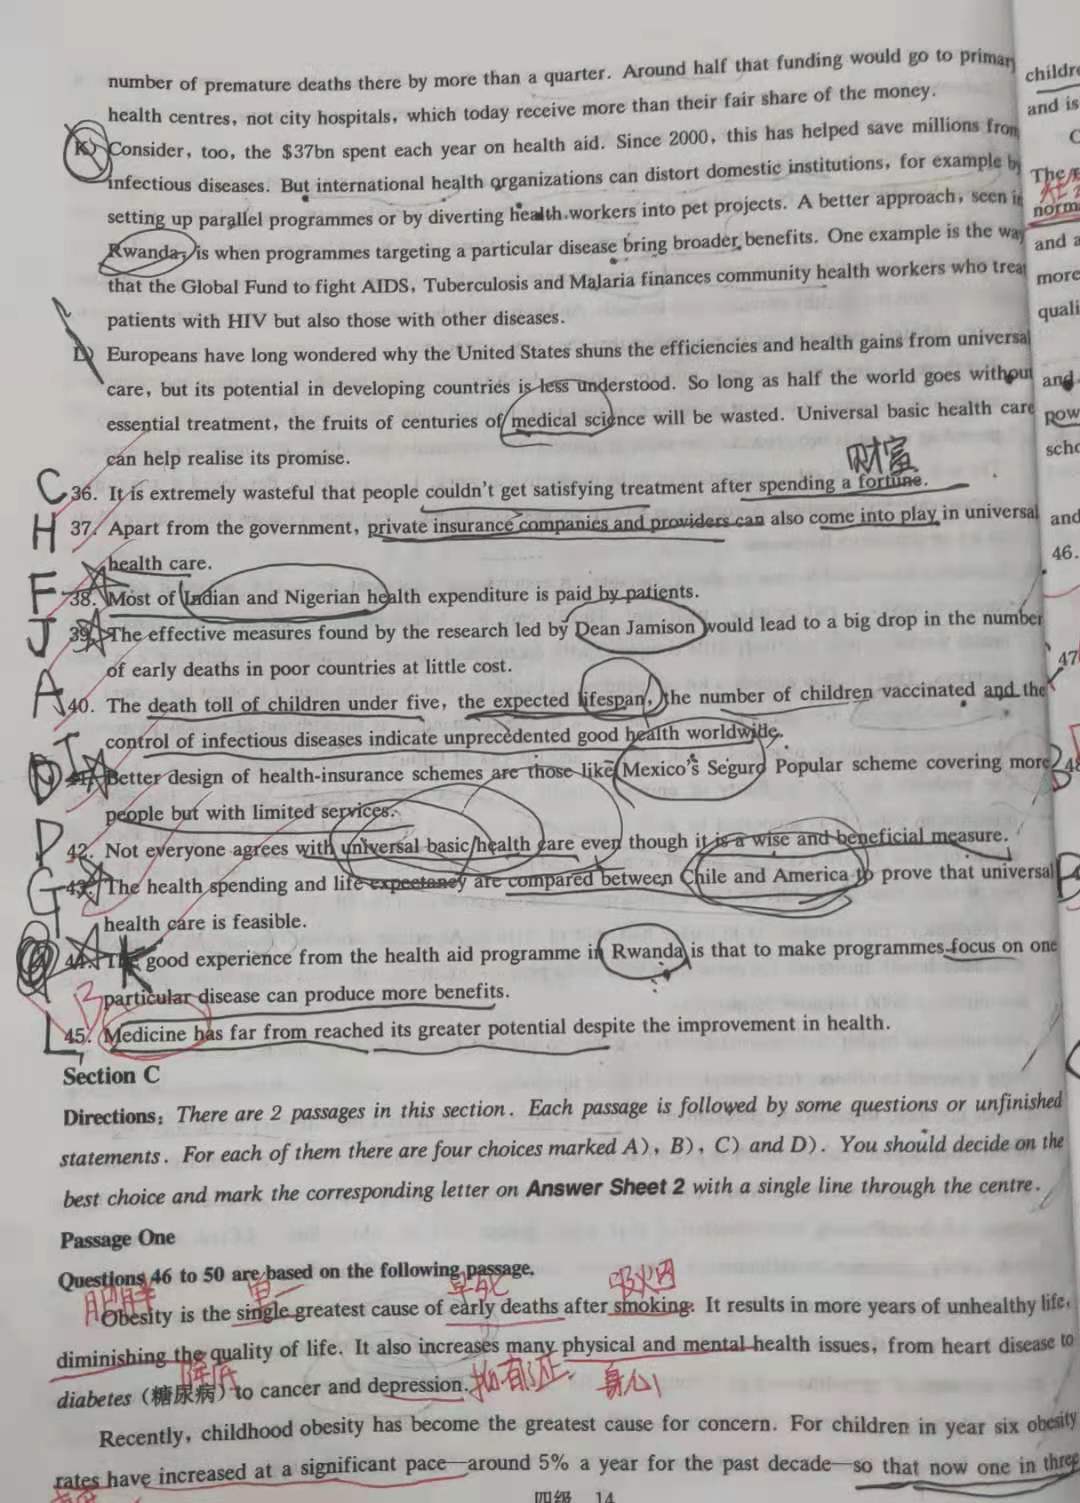 number of premature deaths there by more than a quarter. Around half that funding would go to primary
health centres, not city hospitals, which today receive more than their fair share of the money.
K) Consider, too, the $37bn spent each year on health aid. Since 2000, this has helped save millions from
infectious diseases. But international health organizations can distort domestic institutions, for example by
setting up parallel programmes or by diverting health workers into pet projects. A better approach, seen in
Rwanda, is when programmes targeting a particular disease bring broader benefits. One example is the way
that the Global Fund to fight AIDS, Tuberculosis and Malaria finances community health workers who treat
patients with HIV but also those with other diseases.
L) Europeans have long wondered why the United States shuns the efficiencies and health gains from universal
care, but its potential in developing countries is less understood. So long as half the world goes without
essential treatment, the fruits of centuries of medical science will be wasted. Universal basic health care
can help realise its promise.
财富
C 36. It is extremely wasteful that people couldn't get satisfying treatment after spending a fortune.
H 37. Apart from the government, private insurance companies and providers can also come into play in universal
health care.
F 38. Most of Indian and Nigerian health expenditure is paid by patients.
J 39. The effective measures found by the research led by Dean Jamison would lead to a big drop in the number
of early deaths in poor countries at little cost.
A 40. The death toll of children under five, the expected lifespan, the number of children vaccinated and the
control of infectious diseases indicate unprecedented good health worldwide.
I 41. Better design of health-insurance schemes are those like Mexico's Seguro Popular scheme covering more
people but with limited services.
D 42. Not everyone agrees with universal basic health care even though it is a wise and beneficial measure.
G 43. The health spending and life expectancy are compared between Chile and America to prove that universal
health care is feasible.
K 44. The good experience from the health aid programme in Rwanda is that to make programmes focus on one
particular disease can produce more benefits.
B
L 45. Medicine has far from reached its greater potential despite the improvement in health.
Section C
Directions: There are 2 passages in this section. Each passage is followed by some questions or unfinished
statements. For each of them there are four choices marked A), B), C) and D). You should decide on the
best choice and mark the corresponding letter on Answer Sheet 2 with a single line through the centre.
Passage One
Questions 46 to 50 are based on the following passage.
肥胖 单一 早死 吸火因
Obesity is the single greatest cause of early deaths after smoking. It results in more years of unhealthy life,
diminishing the quality of life. It also increases many physical and mental health issues, from heart disease to
降低 抑郁症 身心
diabetes (糖尿病) to cancer and depression.
Recently, childhood obesity has become the greatest cause for concern. For children in year six obesity
rates have increased at a significant pace—around 5% a year for the past decade—so that now one in three
四级 14
childre
and is
The
norma
and a
more
quali
and
pow
scho
and
46.
47
48